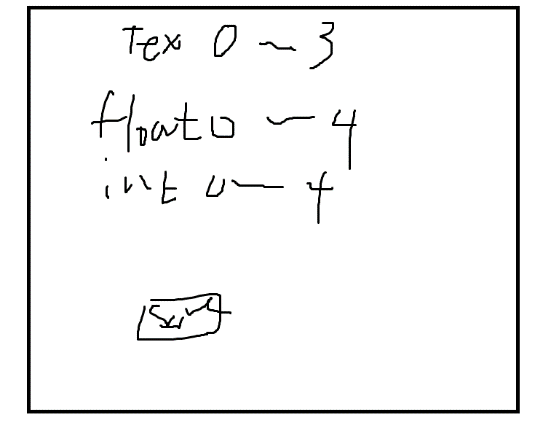 Tex 0 ~ 3
float 0 ~ 4
int 0 ~ 4